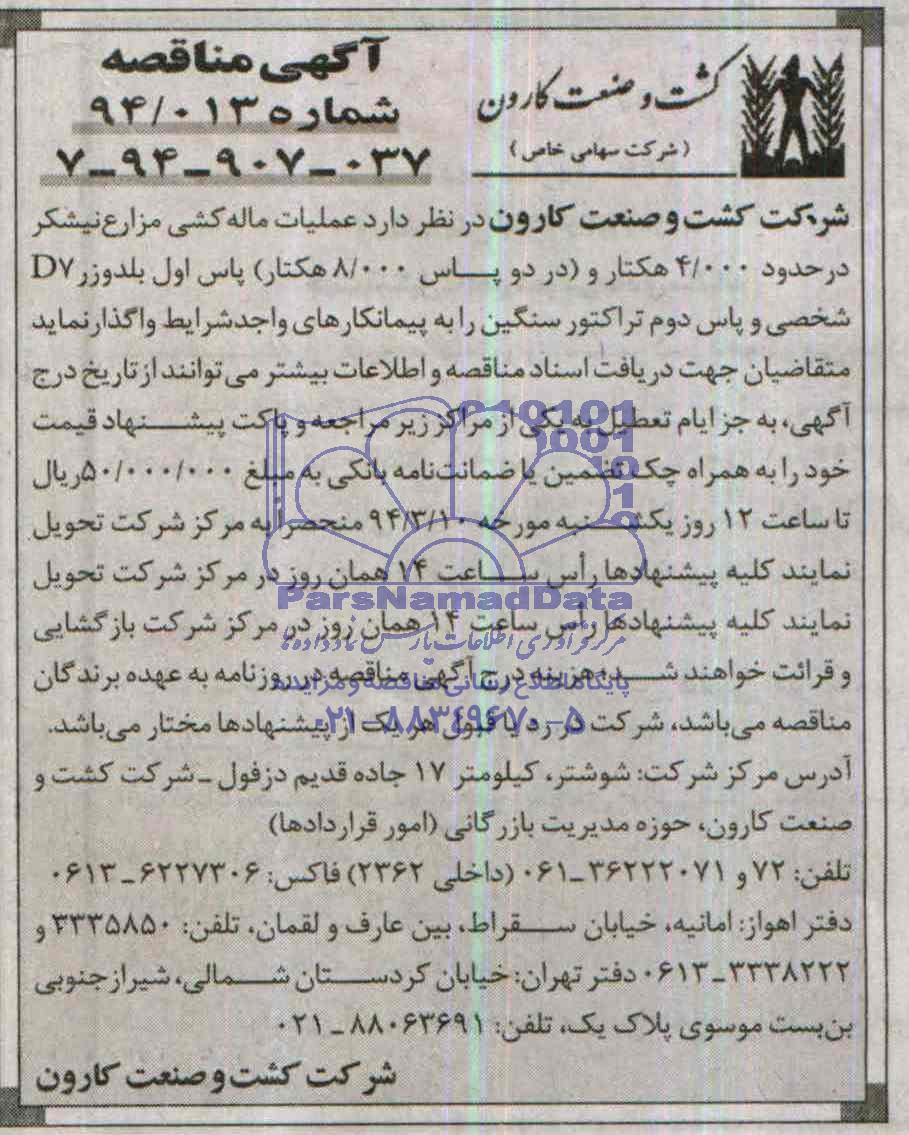 آگهی مناقصه
شماره ۹۴/۰۱۳
۷-۹۴-۹۰۷-۰۳۷
کشت و صنعت کارون
(شرکت سهامی خاص)
شرکت کشت و صنعت کارون در نظر دارد عملیات ماله کشی مزارع نیشکر
در حدود ۴/۰۰۰ هکتار و (در دو پاس ۸/۰۰۰ هکتار) پاس اول بلدوزر D۷
شخصی و پاس دوم تراکتور سنگین را به پیمانکارهای واجد شرایط واگذار نماید
متقاضیان جهت دریافت اسناد مناقصه و اطلاعات بیشتر می توانند از تاریخ درج
آگهی، به جز ایام تعطیل به یکی از مراکز زیر مراجعه و پاکت پیشنهاد قیمت
خود را به همراه چک تضمین یا ضمانت‌نامه بانکی به مبلغ ۵۰/۰۰۰/۰۰۰ ریال
تا ساعت ۱۲ روز یکشنبه مورخه ۹۴/۳/۱۰ منحصرا به مرکز شرکت تحویل
نمایند کلیه پیشنهادها رأس ساعت ۱۴ همان روز در مرکز شرکت تحویل
نمایند کلیه پیشنهادها رأس ساعت ۱۴ همان روز در مرکز شرکت بازگشایی
و قرائت خواهند شد. هزینه درج آگهی مناقصه در روزنامه به عهده برندگان
مناقصه می‌باشد، شرکت در رد یا قبول هر یک از پیشنهادها مختار می‌باشد.
آدرس مرکز شرکت: شوشتر، کیلومتر ۱۷ جاده قدیم دزفول - شرکت کشت و
صنعت کارون، حوزه مدیریت بازرگانی (امور قراردادها)
تلفن: ۷۲ و ۳۶۲۲۲۰۷۱-۰۶۱ (داخلی ۲۳۶۲) فاکس: ۶۲۲۷۳۰۶-۰۶۱۳
دفتر اهواز: امانیه، خیابان سقراط، بین عارف و لقمان، تلفن: ۳۳۳۵۸۵۰ و
۳۳۳۸۲۲۲-۰۶۱۳ دفتر تهران: خیابان کردستان شمالی، شیراز جنوبی
بن‌بست موسوی پلاک یک، تلفن: ۸۸۰۶۳۶۹۱-۰۲۱
شرکت کشت و صنعت کارون
ParsNamadData
مرکز فرآوری اطلاعات پارس نماد داده ها
پایگاه اطلاع رسانی مناقصه و مزایده
۰۲۱-۸۸۳۴۹۶۷۰-۵